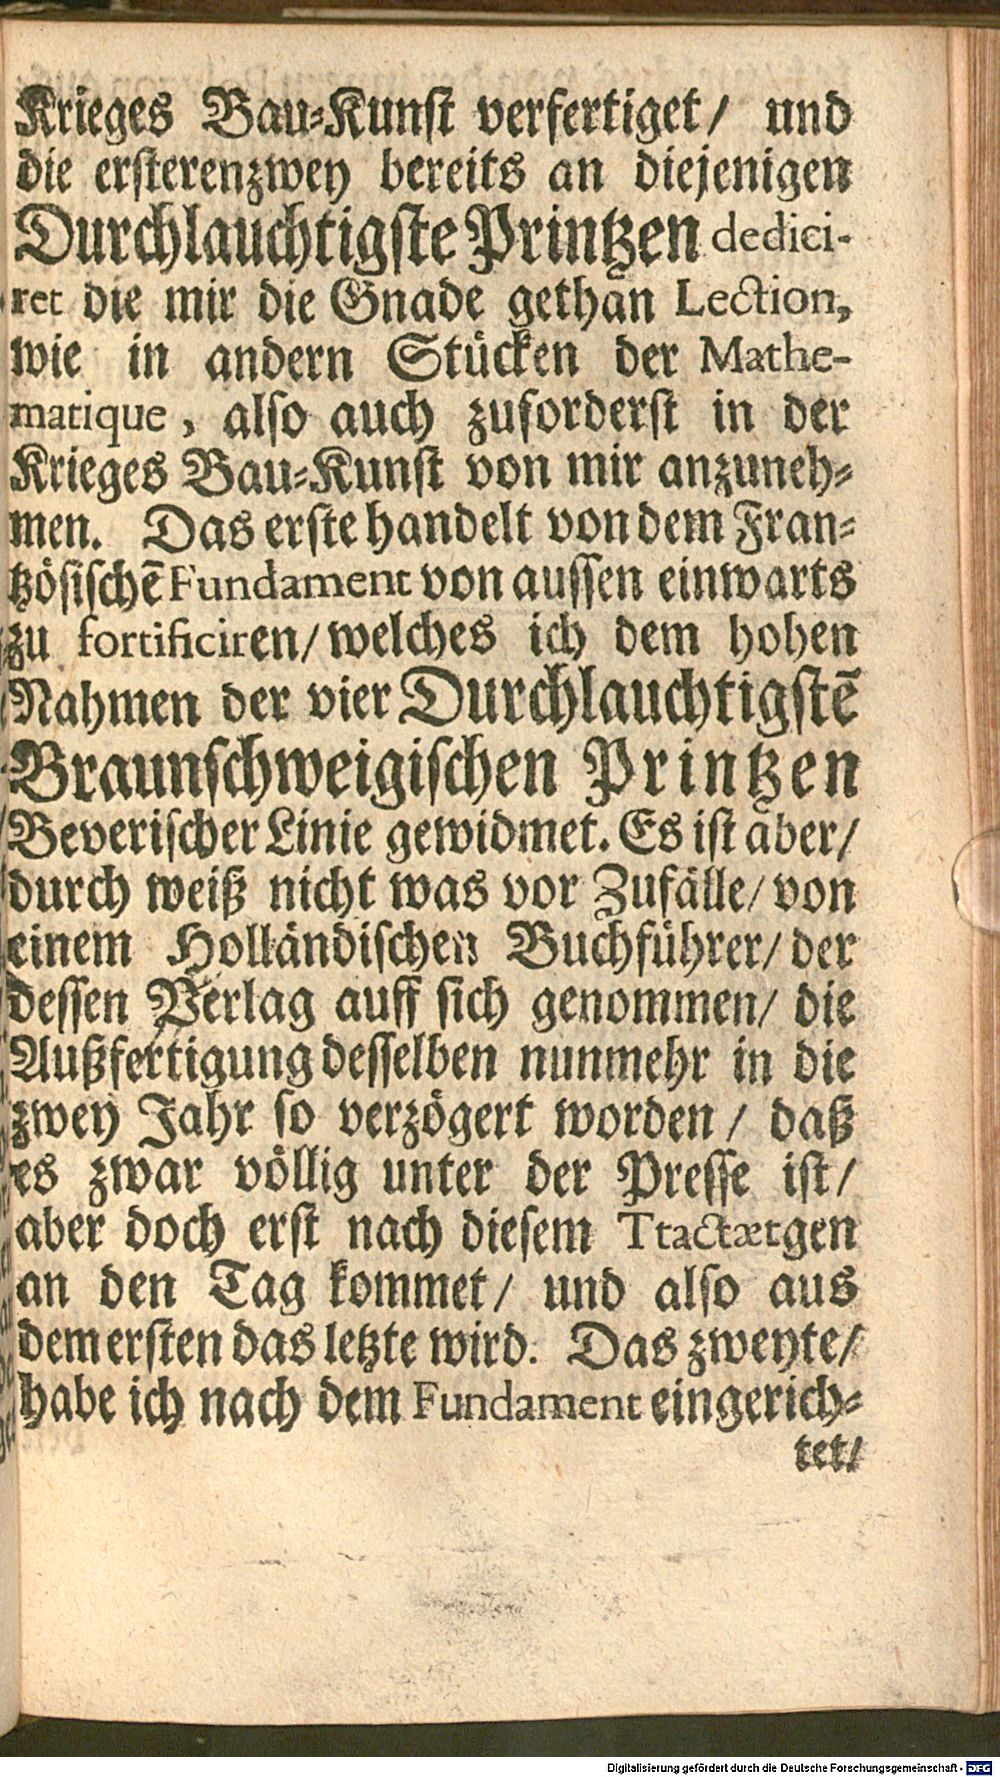 Krieges Bau-Kunst verfertiget/ und
die ersterenzwey bereits an diejenigen
Durchlauchtigste Printzen dedici-
ret die mir die Gnade gethan Lection,
wie in andern Stücken der Mathe-
matique, also auch zuforderst in der
Krieges Bau-Kunst von mir anzuneh-
men. Das erste handelt von dem Fran-
tzösischē Fundament von aussen einwarts
zu fortificiren/ welches ich dem hohen
Nahmen der vier Durchlauchtigstē
Braunschweigischen Printzen
Beverischer Linie gewidmet. Es ist aber/
durch weiß nicht was vor Zufälle/ von
einem Holländischen Buchführer/ der
dessen Verlag auff sich genommen/ die
Außfertigung desselben nunmehr in die
zwey Jahr so verzögert worden/ daß
es zwar völlig unter der Presse ist/
aber doch erst nach diesem Ttactætgen
an den Tag kommet/ und also aus
dem ersten das letzte wird. Das zweyte/
habe ich nach dem Fundament eingerich-
tet/
Digitalisierung gefördert durch die Deutsche Forschungsgemeinschaft - DFG